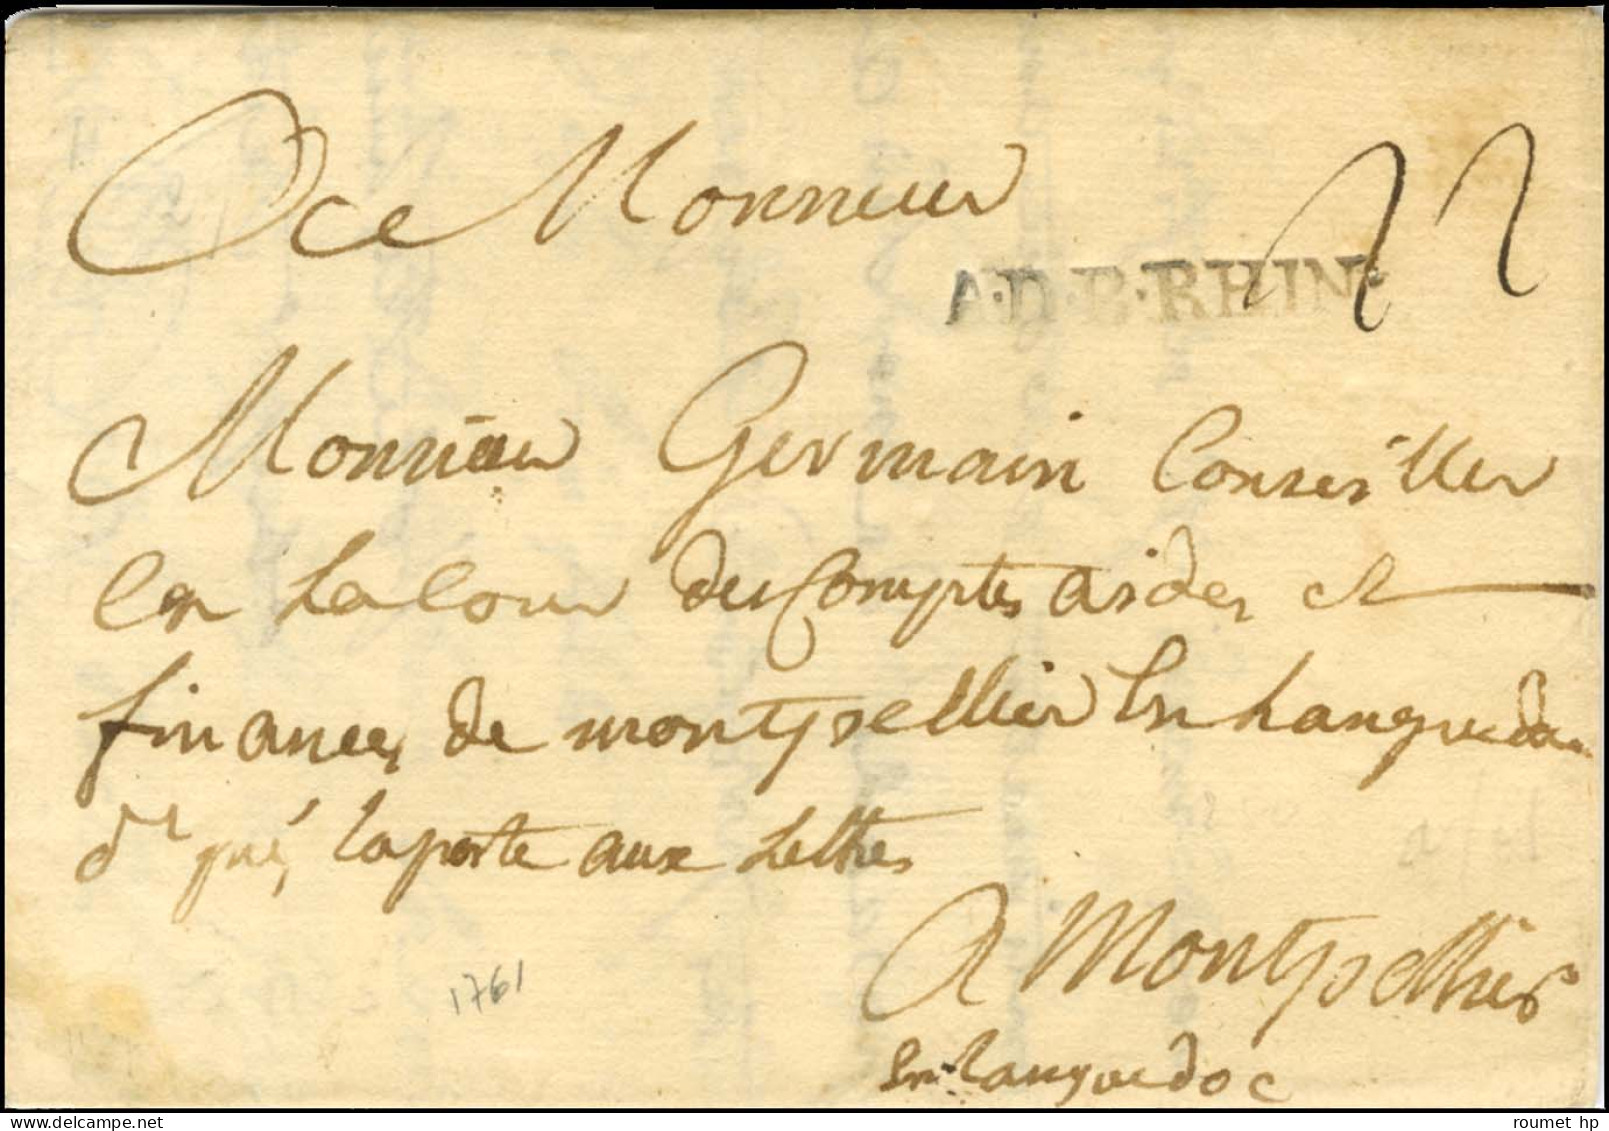 A Monsieur
22
A·D·B·RHIN·
Monsieur Germain Conseiller
en La Cour des Comptes aides et
finances de montpellier En Languedoc
laposte aux Lettres
A Montpellier
en Languedoc
1761
roumet hp